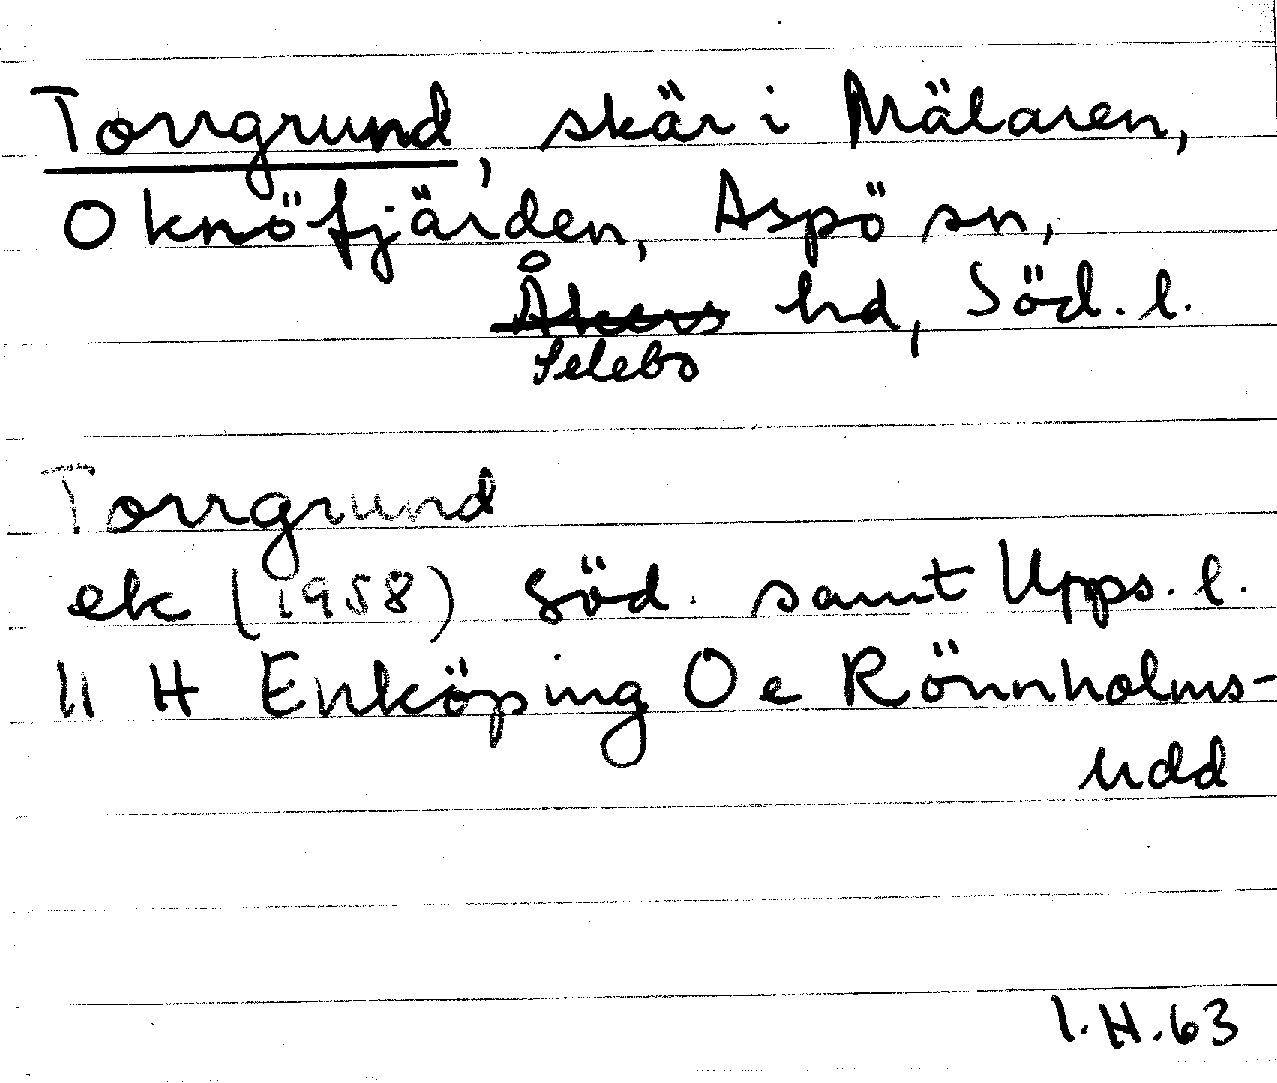 Torrgrund, skär i Mälaren,
Oknöfjärden, Aspö sn,
Åkers hd, Söd. l.
Selebo
Torrgrund
ek (1958) Söd. samt Upps. l.
11 H Enköping 0 e Rönnholms-
udd
I.H.63